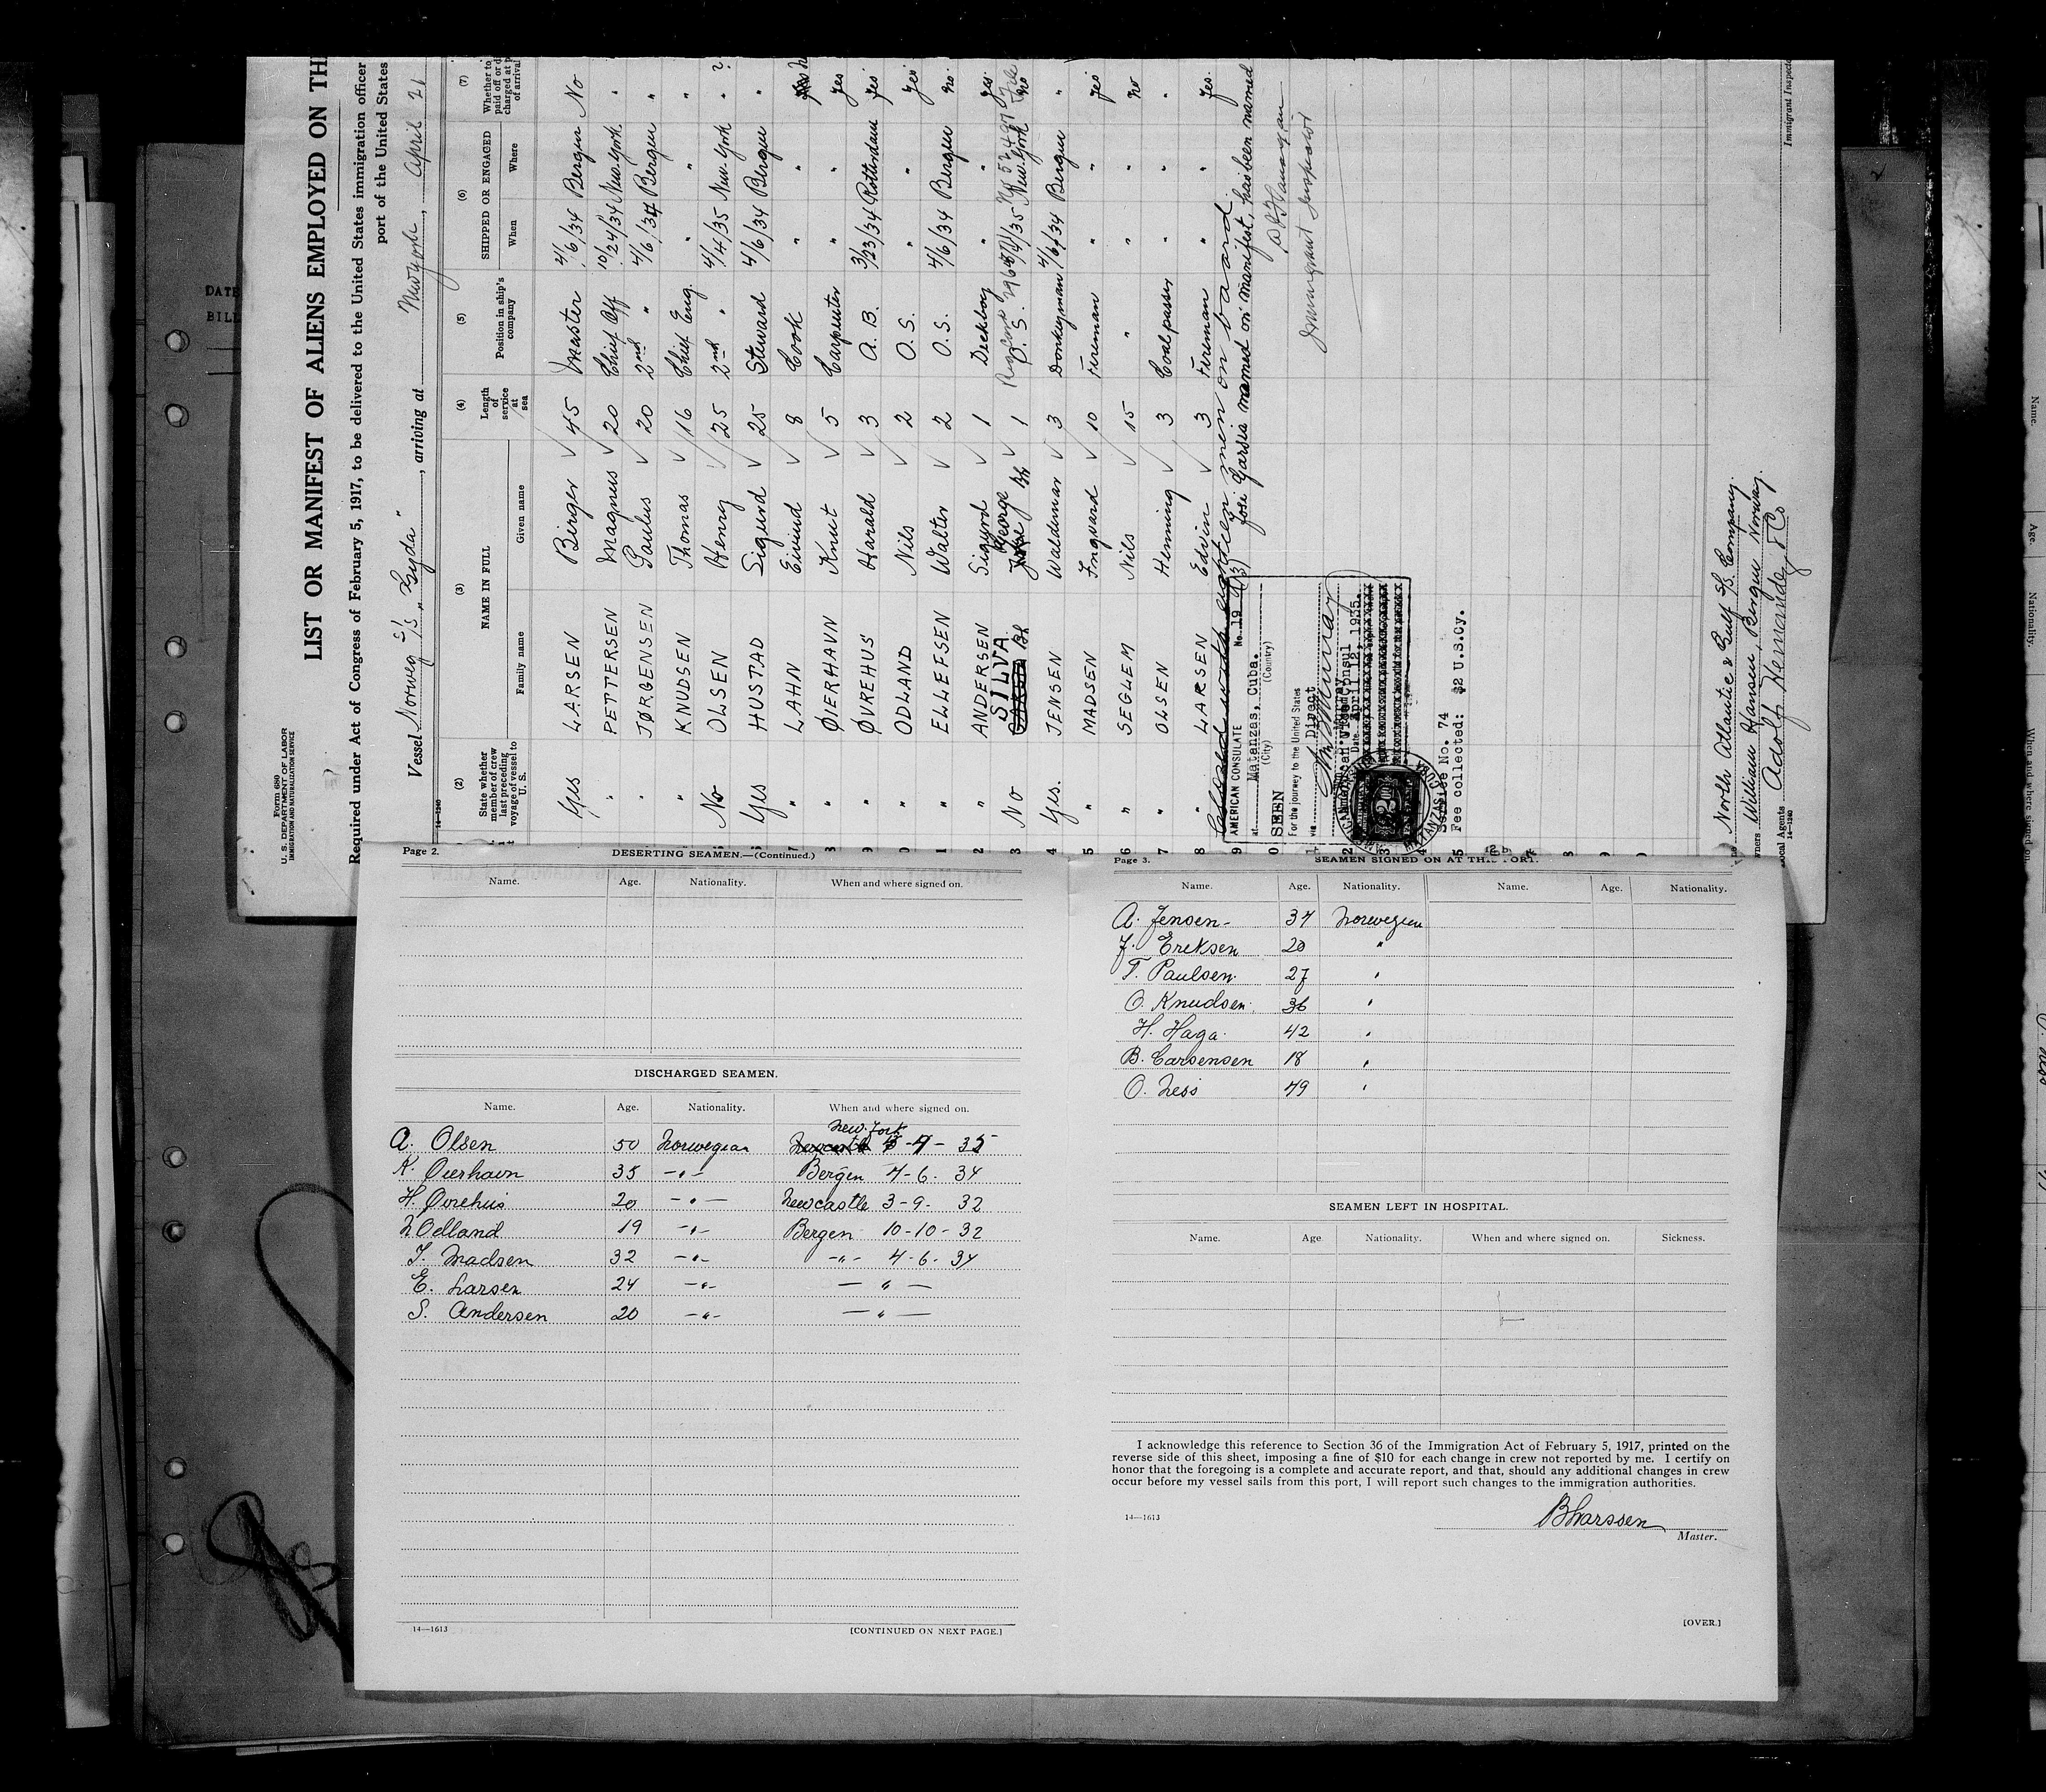 Form 680
U. S. DEPARTMENT OF LABOR
IMMIGRATION AND NATURALIZATION SERVICE
LIST OR MANIFEST OF ALIENS EMPLOYED ON TH
Required under Act of Congress of February 5, 1917, to be delivered to the United States immigration officer
port of the United States
Vessel Norweg S/S "Gyda", arriving at New York, April 21
14-1240
(2) (3) (4) (5) (6) (7)
State whether member of crew last preceding voyage of vessel to U. S.
NAME IN FULL
Family name Given name
Length of service at sea
Position in ship's company
SHIPPED OR ENGAGED
When Where
Whether to paid off or d charged at p of arrival
Yes LARSEN Birger 45 Master 4/6/34 Bergen No
" PETTERSEN Magnus 20 Chief Off 10/24/34 New-York "
" JØRGENSEN Paulus 20 2nd " 4/6/34 Bergen "
" KNUDSEN Thomas 16 Chief Eng. " " "
No OLSEN Henry 25 2nd " 4/4/35 New-York " ?
Yes HUSTAD Sigurd 25 Steward 4/6/34 Bergen "
" LAHN Eivind 8 Cook " " No
" ØIERHAVN Knut 5 Carpenter " " Yes
" ØVREHUS Harald 3 A. B. 3/23/34 Rotterdam Yes
" ODLAND Nils 2 O. S. " " Yes
" ELLEFSEN Walter 2 O. S. 4/6/34 Bergen No.
" ANDERSEN Sigurd 1 Deckboy " " Yes.
No SILVA George 1 O. S. 4/35 New-York No
Yes. JENSEN Waldemar 3 Donkeyman 4/6/34 Bergen "
" MADSEN Ingvard 10 Fireman " " Yes
" SEGLEM Nils 15 " " " No
" OLSEN Henning 3 Coalpasser " " "
" LARSEN Edvin 3 Fireman " " Yes.
Closed with eighteen men on board.
(13) José Garsia named on manifest, has been named
Immigrant Inspector
AMERICAN CONSULATE No. 19
at Matanzas, Cuba.
(City) (Country)
SEEN
For the journey to the United States
via Direct
Murray
American Vice Consul
Date April 12, 1935.
MATANZAS, CUBA
Service No. 74
Fee collected: $2 U.S.Cy.
North Atlantic & Gulf S/S. Company.
Owners William Hansen, Bergen Norway.
Local Agents Adolf Hernandez & Co
14-1240
Immigrant Inspecto
DATE
BILL
Page 2. DESERTING SEAMEN.—(Continued.)
Name. Age. Nationality. When and where signed on.
DISCHARGED SEAMEN.
Name. Age. Nationality. When and where signed on.
New-York
A. Olsen 50 Norwegian Newcastle 4-35
K. Øierhavn 35 -"- Bergen 4-6-34
H. Øvrehus 20 -"- Newcastle 3-9-32
N Odland 19 -"- Bergen 10-10-32
I. Madsen 32 -"- -"- 4-6-34
E. Larsen 24 -"- -"-
S. Andersen 20 -"- -"-
14—1613 [CONTINUED ON NEXT PAGE.]
Page 3. SEAMEN SIGNED ON AT TH PORT.
Name. Age. Nationality. Name. Age. Nationality.
A. Jensen 37 Norwegian
J. Ereksen 20 "
T. Paulsen 27 "
O. Knudsen 36 "
H. Haga 42 "
B. Carsensen 18 "
O. Ness 49 "
SEAMEN LEFT IN HOSPITAL.
Name. Age Nationality. When and where signed on. Sickness.
I acknowledge this reference to Section 36 of the Immigration Act of February 5, 1917, printed on the
reverse side of this sheet, imposing a fine of $10 for each change in crew not reported by me. I certify on
honor that the foregoing is a complete and accurate report, and that, should any additional changes in crew
occur before my vessel sails from this port, I will report such changes to the immigration authorities.
B Larssen
14—1613 Master.
[OVER.]
Name.
Age.
Nationality.
When and where signed on.